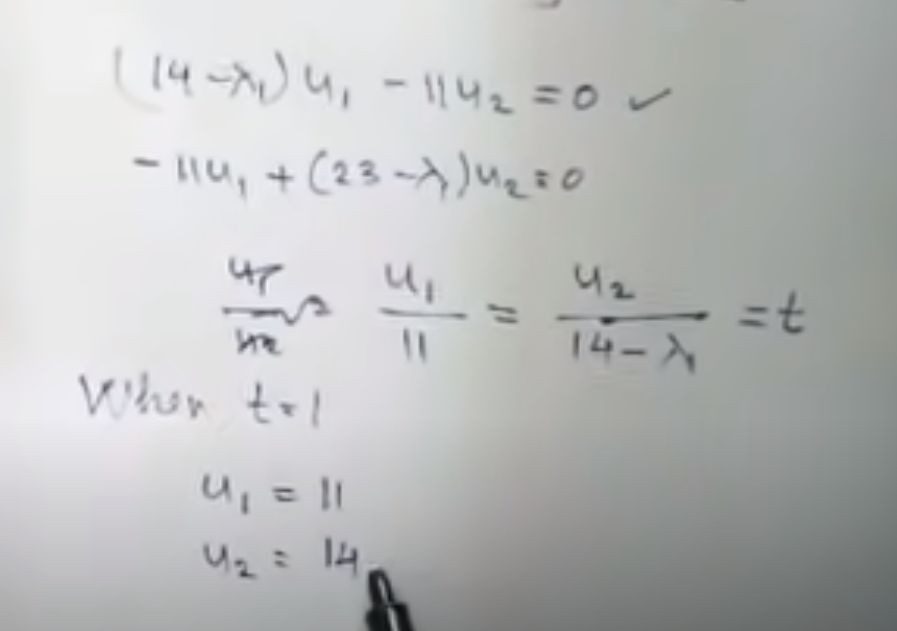 (14-λ₁)u₁ - 11u₂ = 0 ✓
-11u₁ + (23-λ₁)u₂ = 0
u₁/11 = u₂/14-λ₁ = t
When t=1
u₁ = 11
u₂ = 14